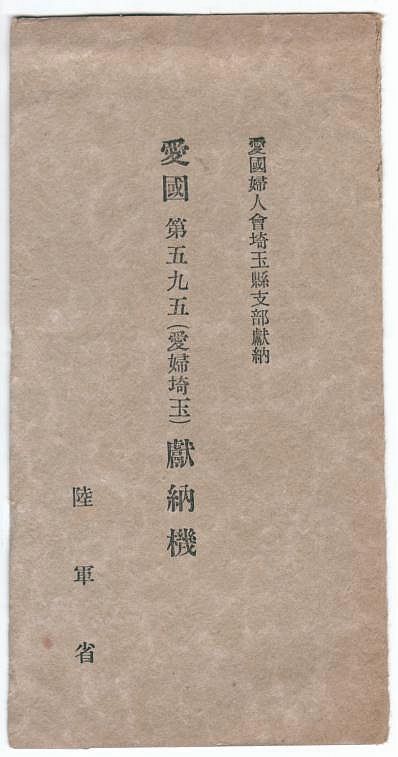 愛國婦人會埼玉縣支部獻納
愛國第五九五(愛婦埼玉)獻納機
陸軍省